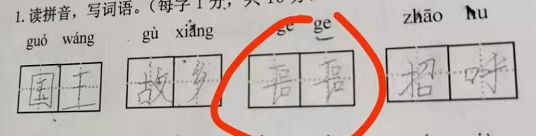 1.读拼音，写词语。（每字1分，共10分）
guó wáng gù xiāng ge ge zhāo hu
国王 故乡 招呼